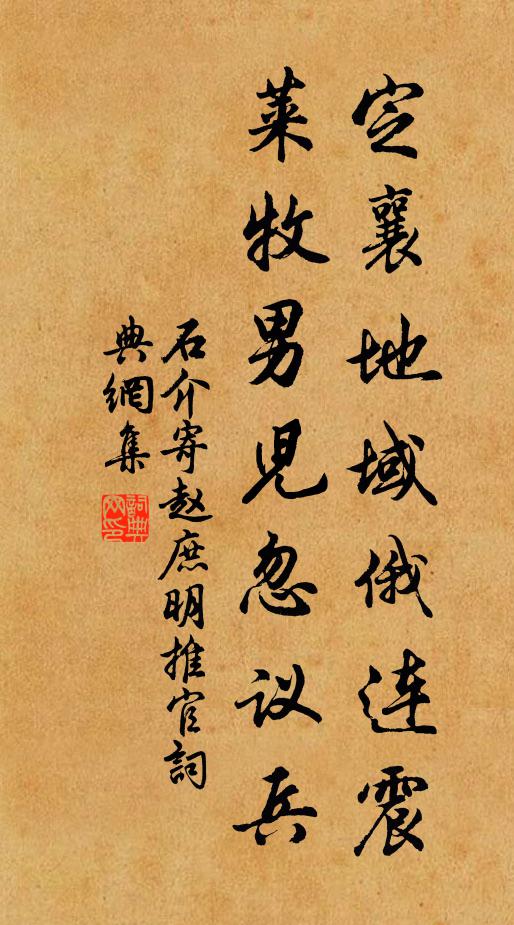 定襄地域俄连震
莱牧男児忽议兵
石介寄赵庶明推官詞
典網集
詞典网印